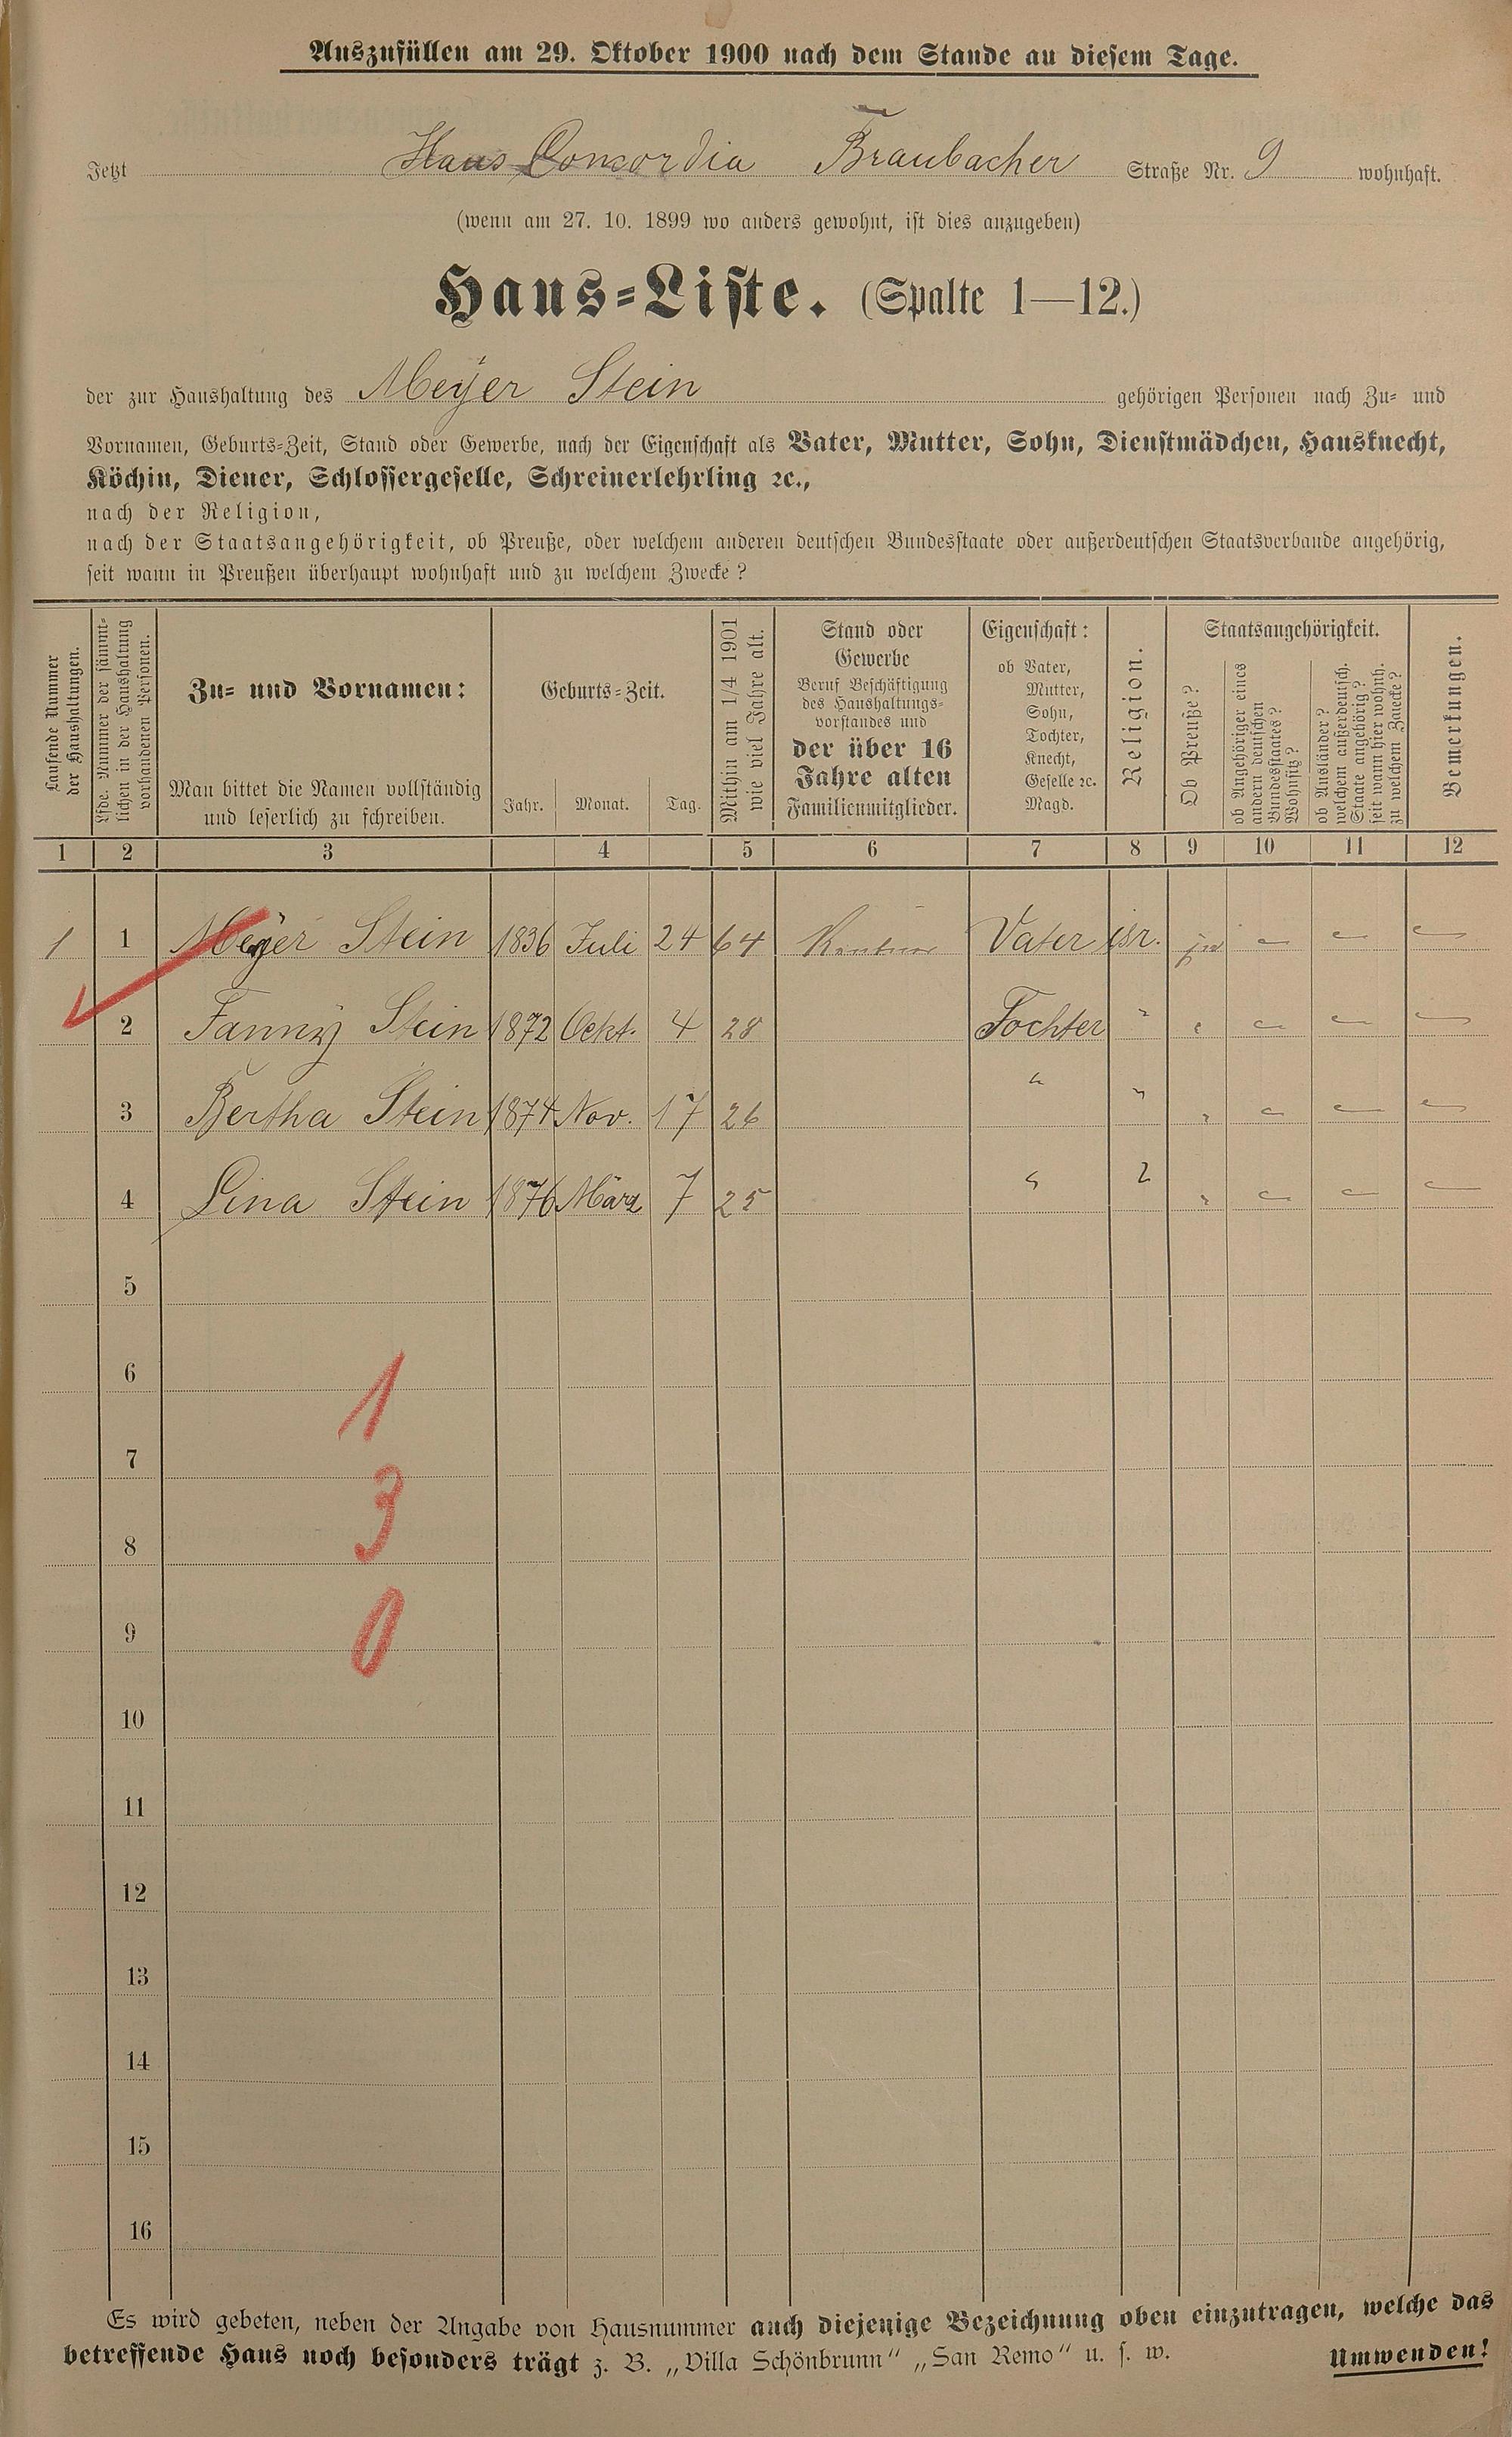 Auszufüllen am 29. Oktober 1900 nach dem Stande an diesem Tage.
Jetzt Haus Concordia Braubacher Straße Nr. 9 wohnhaft.
(wenn am 27. 10. 1899 wo anders gewohnt, ist dies anzugeben)
Haus-Liste. (Spalte 1—12.)
der zur Haushaltung des Meyer Stein gehörigen Personen nach Zu- und
Vornamen, Geburts-Zeit, Stand oder Gewerbe, nach der Eigenschaft als Vater, Mutter, Sohn, Dienstmädchen, Hausknecht,
Köchin, Diener, Schlossergeselle, Schreinerlehrling ꝛc.,
nach der Religion,
nach der Staatsangehörigkeit, ob Preuße, oder welchem anderen deutschen Bundesstaate oder außerdeutschen Staatsverbande angehörig,
seit wann in Preußen überhaupt wohnhaft und zu welchem Zwecke?
Laufende Nummer
der Haushaltungen.
Lfde. Nummer der sämmt-
lichen in der Haushaltung
vorhandenen Personen.
Zu- und Vornamen:
Man bittet die Namen vollständig
und leserlich zu schreiben.
Geburts-Zeit.
Jahr. Monat. Tag.
Mithin am 1/4 1901
wie viel Jahre alt.
Stand oder
Gewerbe
Beruf Beschäftigung
des Haushaltungs-
vorstandes und
der über 16
Jahre alten
Familienmitglieder.
Eigenschaft:
ob Vater,
Mutter,
Sohn,
Tochter,
Knecht,
Geselle ꝛc.
Magd.
Religion.
Staatsangehörigkeit.
Ob Preuße?
ob Angehöriger eines
andern deutschen
Bundesstaates?
Wohnsitz?
ob Ausländer?
welchem außerdeutsch.
Staate angehörig?
seit wann hier wohnh.
zu welchem Zwecke?
Bemerkungen.
1 2 3 4 5 6 7 8 9 10 11 12
1 1 Meyer Stein 1836 Juli 24 64 Rentner Vater isr. ja — — —
2 Fanny Stein 1872 Ockt. 4 28 Tochter " " — — —
3 Bertha Stein 1874 Nov. 17 26 " " " — — —
4 Lina Stein 1876 März 7 25 " " " — — —
5
6
1
7
3
8
9
0
10
11
12
13
14
15
16
Es wird gebeten, neben der Angabe von Hausnummer auch diejenige Bezeichnung oben einzutragen, welche das
betreffende Haus noch besonders trägt z. B. „Villa Schönbrunn“ „San Remo“ u. s. w. Umwenden!